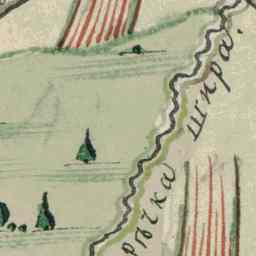 рѣчка шира.